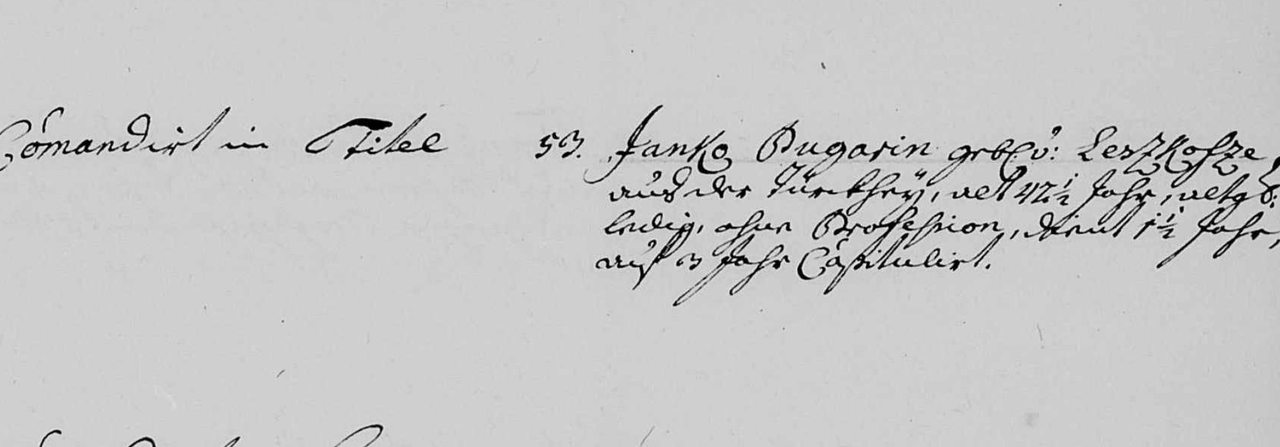 Comandirt in Titel 53. Janko Bugarin geb: v: Leszkofze
aus der Türckhey, alt 42½ Jahr, altgb:
ledig, ohne Profession, dient 1½ Jahr,
auf 3 Jahr Capitulirt.